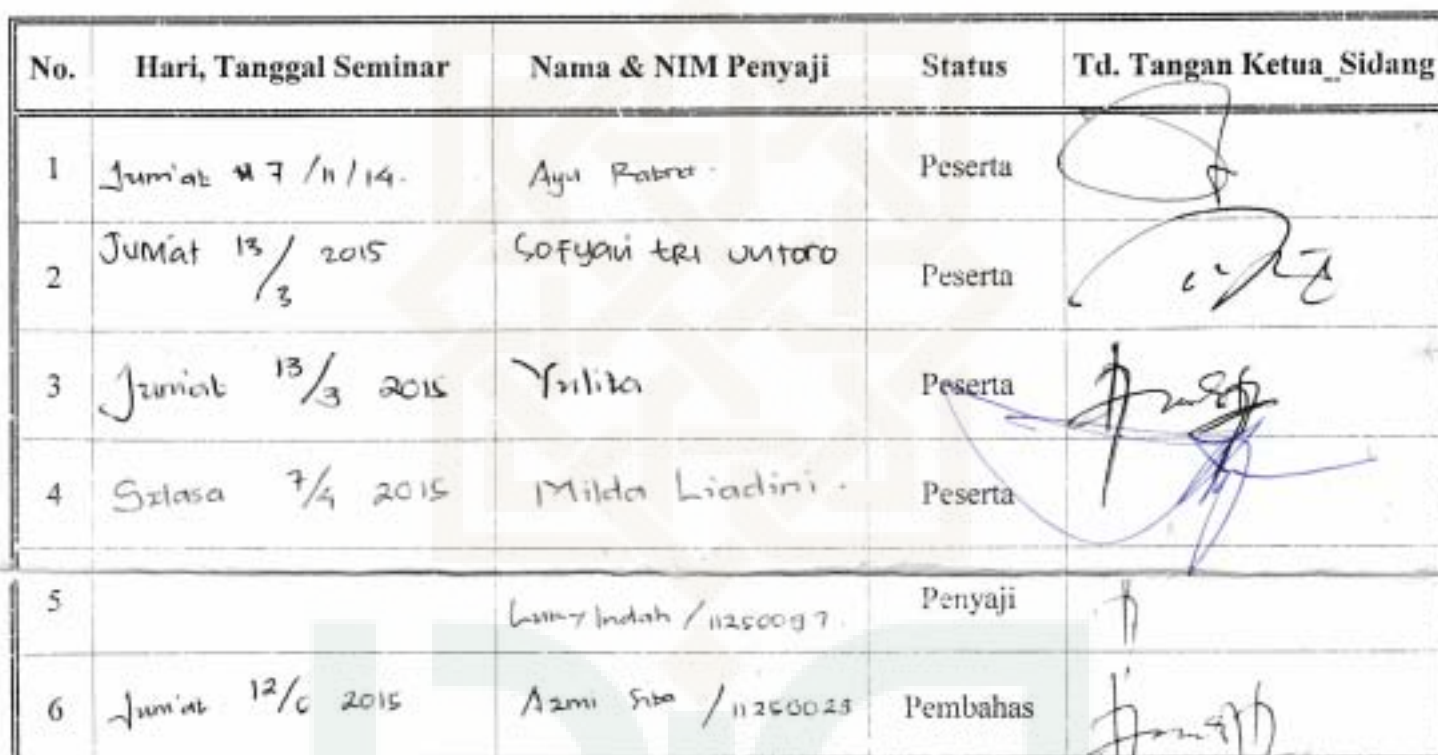 No. Hari, Tanggal Seminar Nama & NIM Penyaji Status Td. Tangan Ketua Sidang
1 Jum'at 7/11/14. Ayu Peserta
2 Jumat 13/3 2015 Sofyan tri untoro Peserta
3 Jum'at 13/3 2015 Yulita Peserta
4 Selasa 7/4 2015 Milda Liadini. Peserta
5 Indah / 11250097. Penyaji
6 Jum'at 12/6 2015 Azmi / 11250023 Pembahas